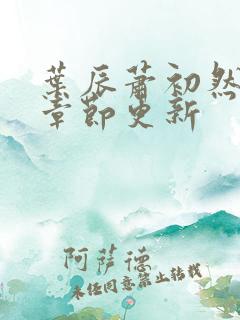 葉辰蕭初然
章節更新
阿萨德
未经同意禁止转载